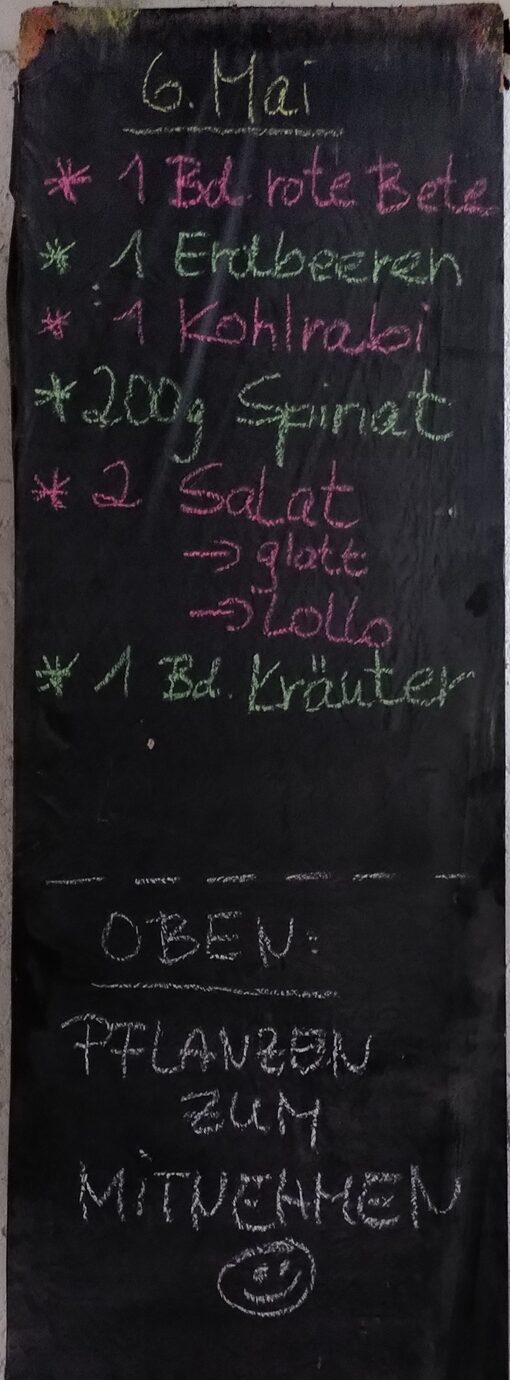 6. Mai
* 1 Bd. rote Bete
* 1 Erdbeeren
* 1 Kohlrabi
* 200g Spinat
* 2 Salat
→ glatt
→ Lollo
* 1 Bd. Kräuter
OBEN:
PFLANZEN
ZUM
MiTNEHMEN